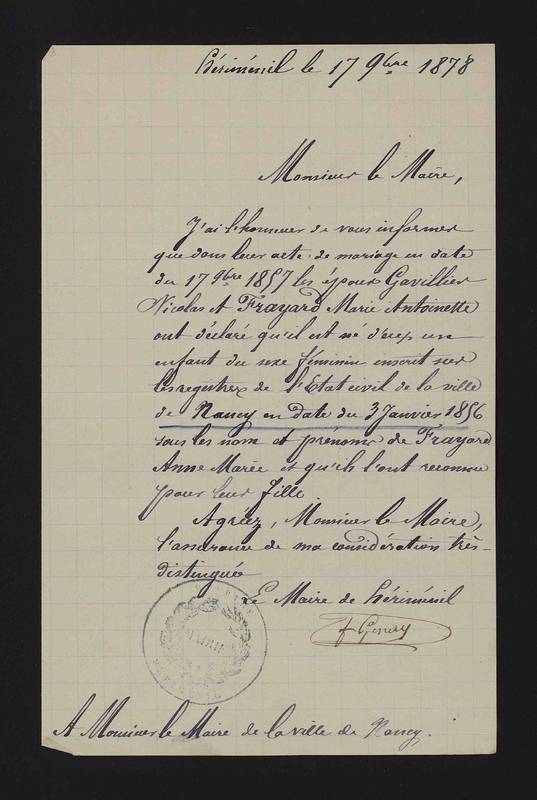 Hériménil le 17 9bre 1878
Monsieur le Maire,
J'ai l'honneur de vous informer
que dans leur acte de mariage en date
du 17 9bre 1857 les époux Gavillier
Nicolas et Frayard Marie Antoinette
ont déclaré qu'il est né d'eux un
enfant du sexe féminin inscrit sur
les registres de l'Etat civil de la ville
de Nancy en date du 3 Janvier 1856
sous les noms et prénoms de Frayard
Anne Marie et qu'ils l'ont reconnue
pour leur fille
Agréez, Monsieur le Maire,
l'assurance de ma considération très-
distinguée
Le Maire de Hériménil
MAIRIE
A Monsieur le Maire de la ville de Nancy.